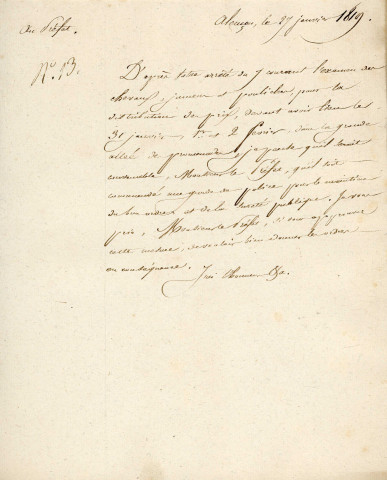 Au Préfet.
Alençon, le 27 janvier 1819.
N°. 13.
D'après votre arrêté du 7 courant l'examen des
chevaux, jumens et pouliches, pour la
distribution des prix, devant avoir lieu les
31 janvier, 1er et 2 février, dans la grande
allée de promenade, je pense qu'il serait
convenable, Monsieur le Préfet, qu'il soit
commandé une garde de police pour le maintien
du bon ordre et de la sureté publique. Je vous
prie, Monsieur le Préfet, si vous approuvez
cette mesure, de vouloir bien donner des ordres
en conséquence.
J'ai l'honneur &a.